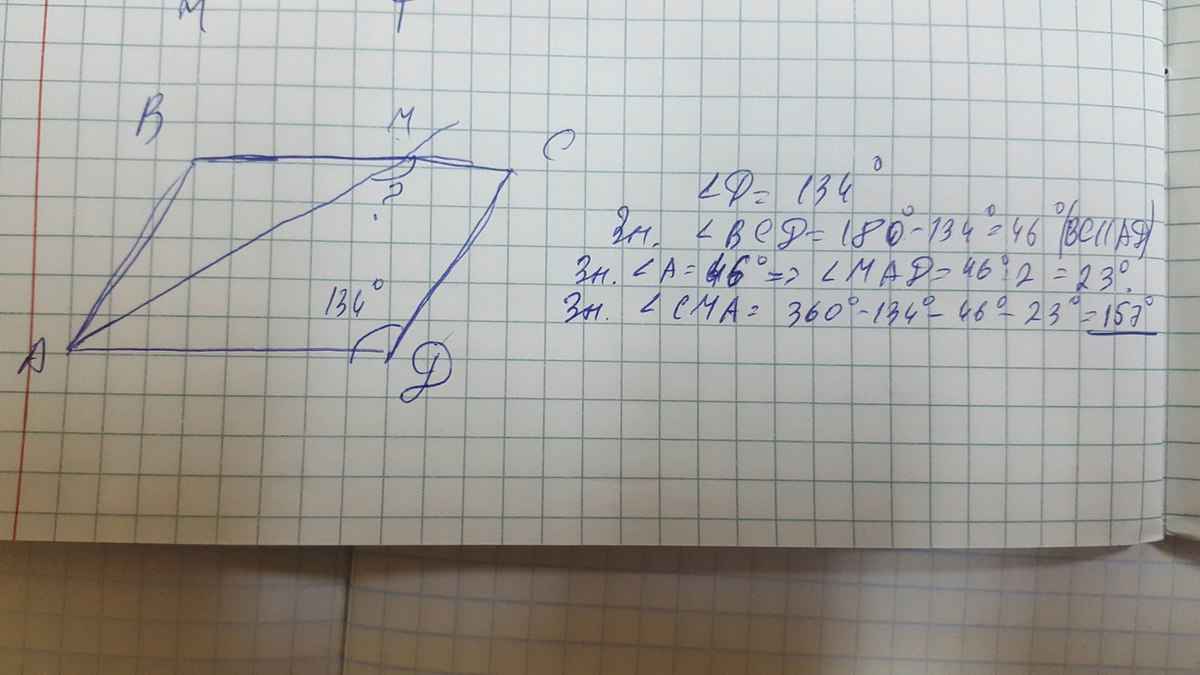 M T
B M C
?
134°
A D
∠D = 134°
Зн. ∠BCD = 180° - 134° = 46° (BC||AD)
Зн. ∠A = 46° => ∠MAD = 46° : 2 = 23°.
Зн. ∠CMA = 360° - 134° - 46° - 23° = 157°